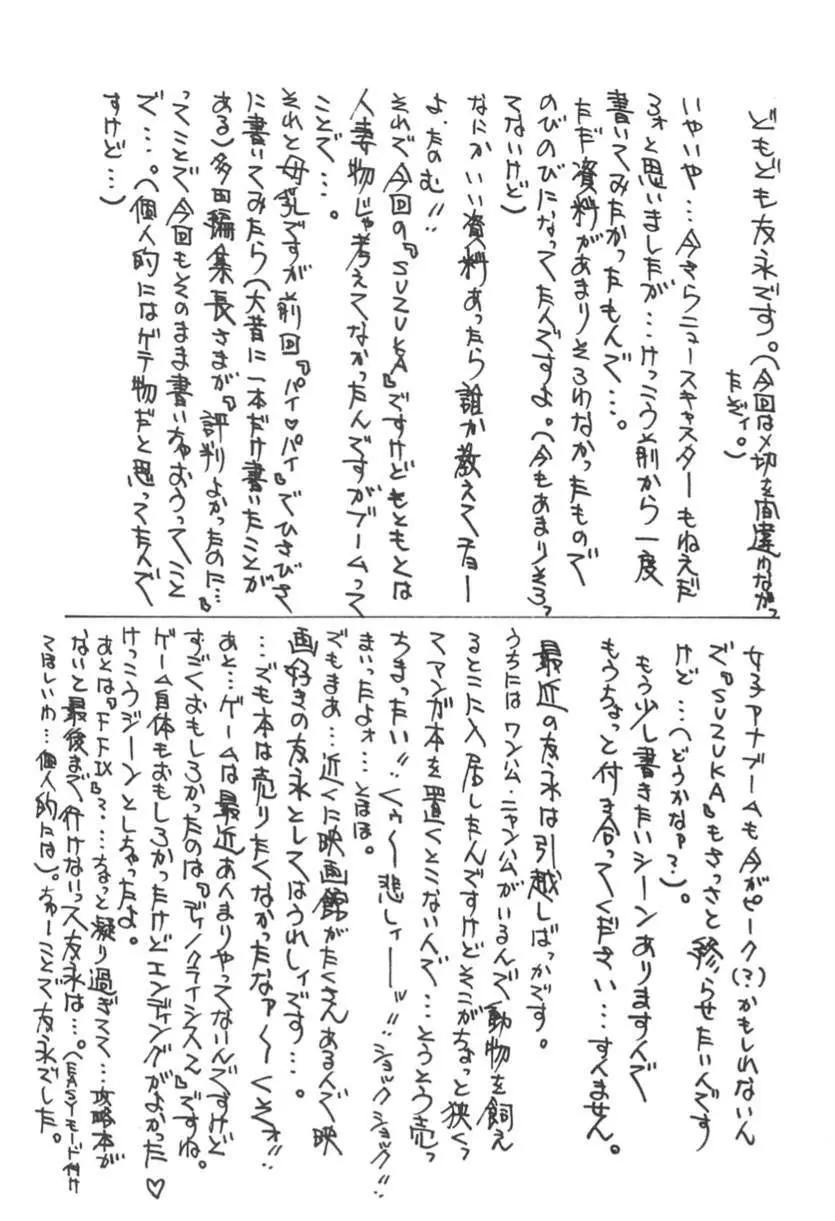 どもども友永です。(今回は〆切を間違わなかっ
たぞィ。)
いやいや…今さらニュースキャスターもねえだ
ろォと思いましたが…けっこう前から一度
書いてみたかったもんで…。
ただ資料があまりそろわなかったもので
のびのびになってたんですよ。(今もあまりそろっ
てないけど)
なにかいい資料あったら誰か教えてチョー
よ.たのむ!!
それで今回の『SUZUKA』ですけどもともとは
人妻物じゃ考えてなかったんですがブームって
ことで…。
それと母乳ですが前回『パイ♡パイ』でひさびさ
に書いてみたら(大昔に一本だけ書いたことが
ある)多田編集長さまが『評判よかったのに…』
ってことで今回もそのまま書いちゃおうってこと
で…。(個人的にはゲテ物だと思ってたんで
すけど…)
女子アナブームも今がピーク(?)かもしれないん
で『SUZUKA』もさっさと終らせたいんです
けど…(どうかなァ?…)。
もう少し書きたいシーンありますんで
もうちょっと付き合ってください…すんません。
最近の友永は引越しばっかです。
うちには ワンハム・ニャンハムがいるんで動物を飼え
るとこに入居したんですけどそこがちょっと狭くっ
てマンガ本を置くとこないんで…そうそう売っ
ちまったい!!‥くぅ〜悲しィーッ!!‥ショックショック!!‥
まいったよォ…とほほ。
でもまあ…近くに映画館がたくさんあるんで映
画好きの友永としてはうれしィです…。
…でも本は売りたくなかったなァ〜くそォ!!‥
あと…ゲームは最近あんまりやってないんですけど
すごくおもしろかったのは『ディノクライシス2』ですね。
ゲーム自体もおもしろかったけどエンディングがよかった♡
けっこうジーンとしちゃったよ。
あとは『FFIX』?…ちょっと凝り過ぎてて…攻略本が
ないと最後まで行けないっス友永は…。(EASYモード付け
てほしいわ…個人的には)。ちゅーことで友永でした。